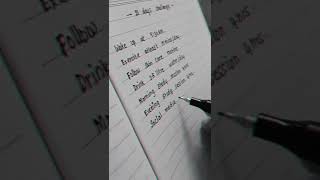 days challenge
Wake up at
Exercise atleast
Follow skin care routine
Drink litre water/day
Morning study session 4hrs
Evening study session
Social media
Follow
Drink
ession 4 hrs